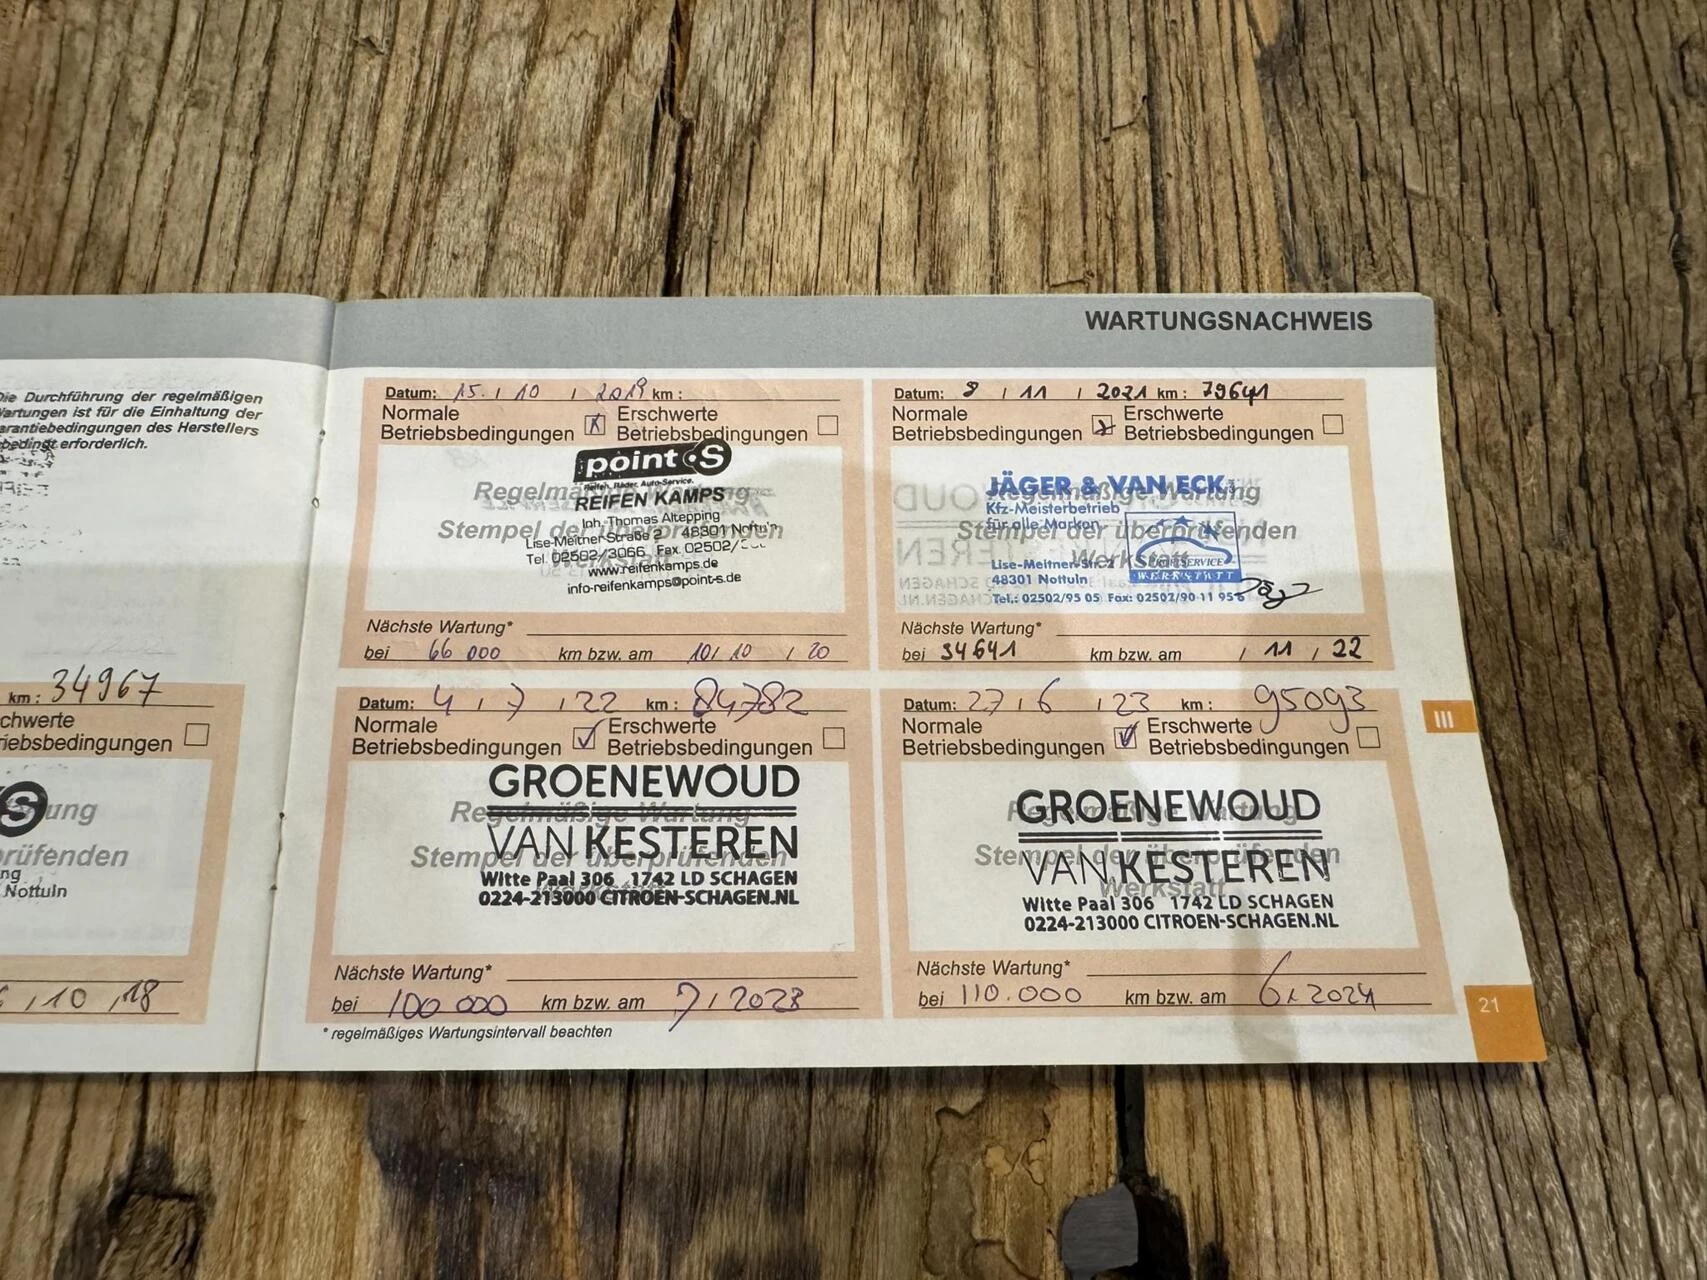 WARTUNGSNACHWEIS
Die Durchführung der regelmäßigen
Wartungen ist für die Einhaltung der
Garantiebedingungen des Herstellers
erforderlich.
km : 34967
chwerte
riebsbedingungen
ung
prüfenden
ng
Nottuln
/10 /18
Datum: 15. / 10 / 2019 km :
Normale Erschwerte
Betriebsbedingungen Betriebsbedingungen
point S
Reifen, Räder, Auto-Service.
Regelmäßige Wartung
REIFEN KAMPS
Inh. Thomas Altepping
Stempel der überprüfenden
Lise-Meitner-Straße 2 48301 Nottuln
Tel. 02502/3066 Fax 02502/
Werkstatt
www.reifenkamps.de
info-reifenkamps@point-s.de
Nächste Wartung*
bei 66 000 km bzw. am 10/ 10 / 20
Datum: 8 / 11 / 2021 km : 79641
Normale Erschwerte
Betriebsbedingungen Betriebsbedingungen
JÄGER & VAN ECK
Regelmäßige Wartung
Kfz-Meisterbetrieb
für alle Marken
Stempel der überprüfenden
Werkstatt
Lise-Meitner-Str. 2
48301 Nottuln
SERVICE
WERKSTATT
Tel.: 02502/95 05 Fax: 02502/90 11 956
Nächste Wartung*
bei 94641 km bzw. am / 11 / 22
Datum: 4 / 7 / 22 km : 84782
Normale Erschwerte
Betriebsbedingungen Betriebsbedingungen
GROENEWOUD
Regelmäßige Wartung
VAN KESTEREN
Stempel der überprüfenden
Witte Paal 306 1742 LD SCHAGEN
Werkstatt
0224-213000 CITROEN-SCHAGEN.NL
Nächste Wartung*
bei 100 000 km bzw. am 7 / 2023
Datum: 27 / 6 / 23 km : 95093
Normale Erschwerte
Betriebsbedingungen Betriebsbedingungen
GROENEWOUD
Regelmäßige Wartung
VAN KESTEREN
Stempel der überprüfenden
Werkstatt
Witte Paal 306 1742 LD SCHAGEN
0224-213000 CITROEN-SCHAGEN.NL
Nächste Wartung*
bei 110.000 km bzw. am 6 / 2024
* regelmäßiges Wartungsintervall beachten
III
21